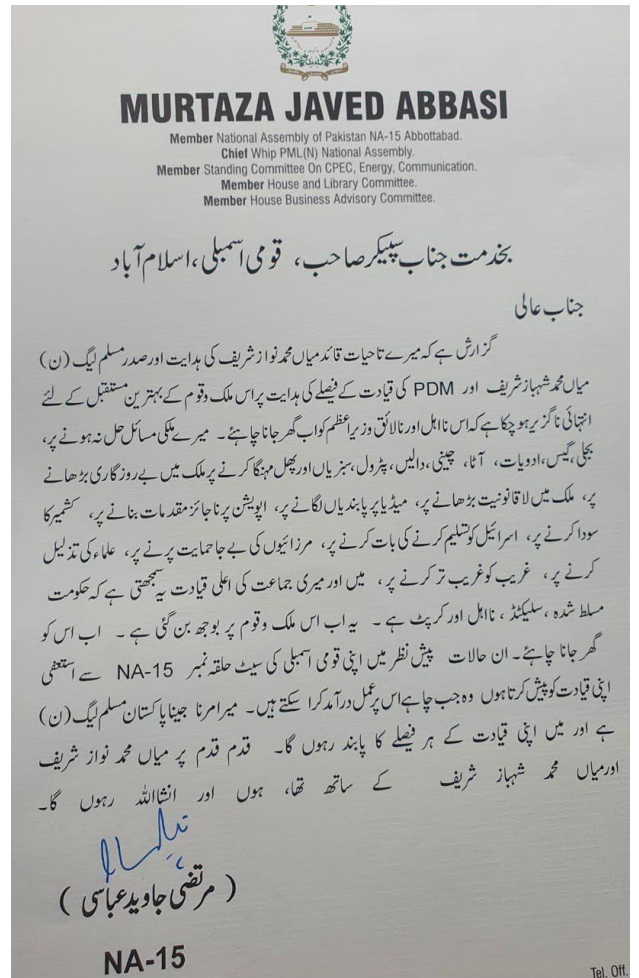 MURTAZA JAVED ABBASI
Member National Assembly of Pakistan NA-15 Abbottabad.
Chief Whip PML(N) National Assembly.
Member Standing Committee On CPEC, Energy, Communication.
Member House and Library Committee.
Member House Business Advisory Committee.
بخدمت جناب سپیکر صاحب، قومی اسمبلی، اسلام آباد
جناب عالی
گزارش ہے کہ میرے تاحیات قائد میاں محمد نواز شریف کی ہدایت اور صدر مسلم لیگ (ن)
میاں محمد شہباز شریف اور PDM کی قیادت کے فیصلے کی ہدایت پر اس ملک و قوم کے بہترین مستقبل کے لئے
انتہائی ناگزیر ہو چکا ہے کہ اس نااہل اور نالائق وزیر اعظم کو اب گھر جانا چاہئے۔ میرے ملکی مسائل حل نہ ہونے پر،
بجلی، گیس، ادویات، آٹا، چینی، دالیں، پٹرول، سبزیاں اور پھل مہنگا کرنے پر ملک میں بے روزگاری بڑھانے
پر، ملک میں لاقانونیت بڑھانے پر، میڈیا پر پابندیاں لگانے پر، اپوزیشن پر ناجائز مقدمات بنانے پر، کشمیر کا
سودا کرنے پر، اسرائیل کو تسلیم کرنے کی بات کرنے پر، مرزائیوں کی بے جا حمایت پر نے پر، علماء کی تذلیل
کرنے پر، غریب کو غریب تر کرنے پر، میں اور میری جماعت کی اعلی قیادت یہ سمجھتی ہے کہ حکومت
مسلط شدہ، سلیکٹڈ، نااہل اور کرپٹ ہے۔ یہ اب اس ملک و قوم پر بوجھ بن گئی ہے۔ اب اس کو
گھر جانا چاہئے۔ ان حالات پیش نظر میں اپنی قومی اسمبلی کی سیٹ حلقہ نمبر NA-15 سے استعفی
اپنی قیادت کو پیش کرتا ہوں وہ جب چاہے اس پر عمل درآمد کرا سکتے ہیں۔ میرا مرنا جینا پاکستان مسلم لیگ (ن)
ہے اور میں اپنی قیادت کے ہر فیصلے کا پابند رہوں گا۔ قدم قدم پر میاں محمد نواز شریف
اور میاں محمد شہباز شریف کے ساتھ تھا، ہوں اور انشااللہ رہوں گا۔
(مرتضی جاوید عباسی)
NA-15
Tel. Off.